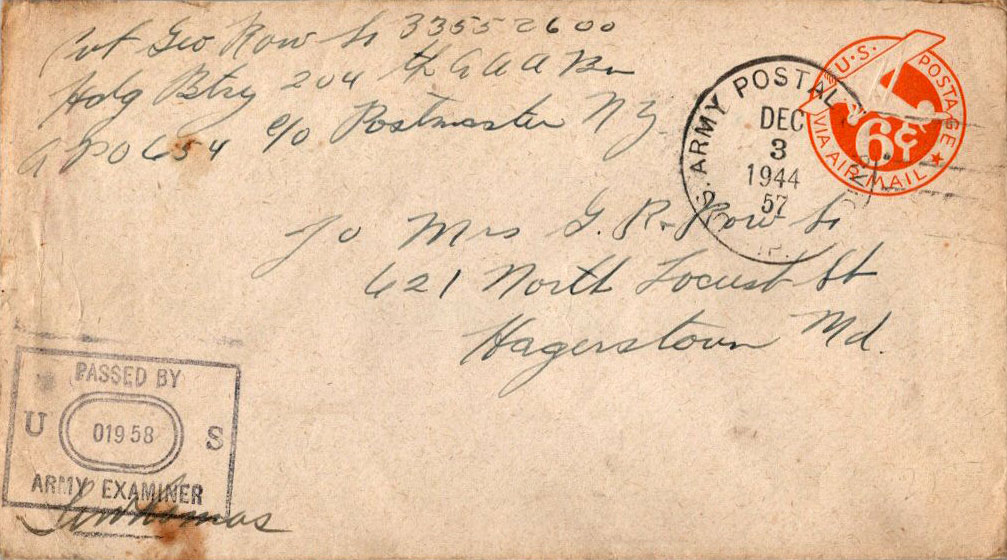 Pvt Geo Row Sr 33552600
Hdq Btry 204 th AAA Bn
APO 654 c/o Postmaster N.Y.
U.S. POSTAGE
VIA AIR MAIL
6¢
ARMY POSTAL
DEC
3
1944
57
To Mrs G. R. Row Sr
621 North Locust St
Hagerstown Md.
PASSED BY
U 01958 S
ARMY EXAMINER